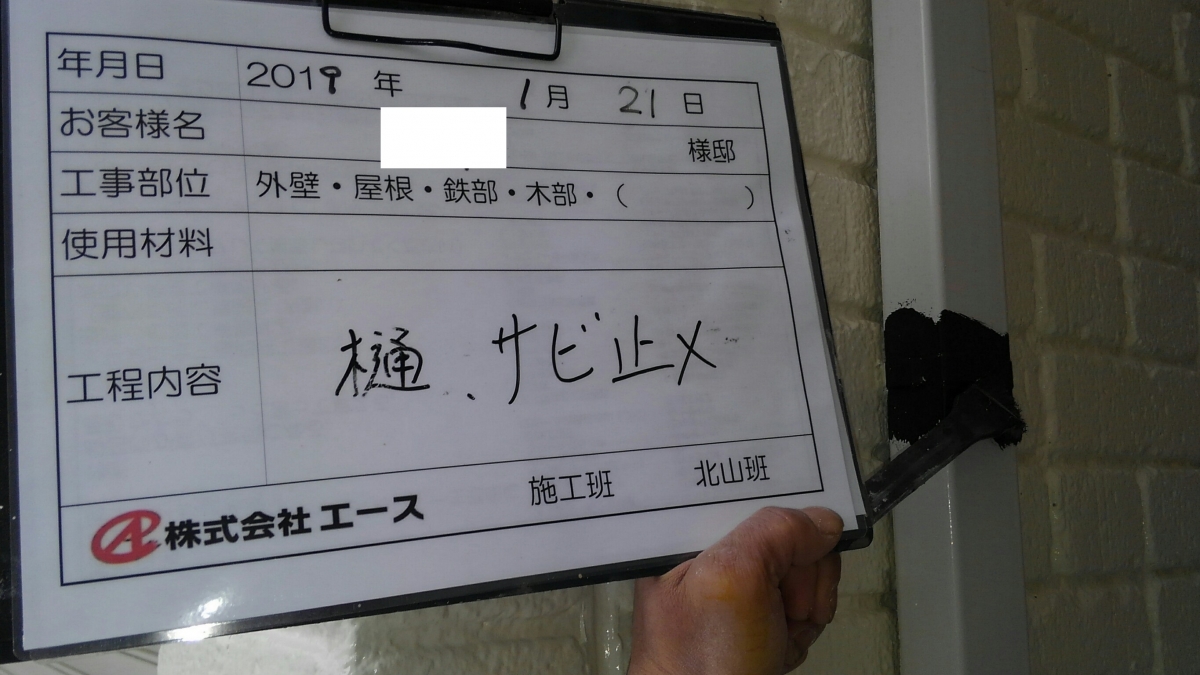 年月日 2019 年 1 月 21 日
お客様名 様邸
工事部位 外壁・屋根・鉄部・木部・（ ）
使用材料
工程内容 樋、サビ止メ
施工班 北山班
株式会社エース